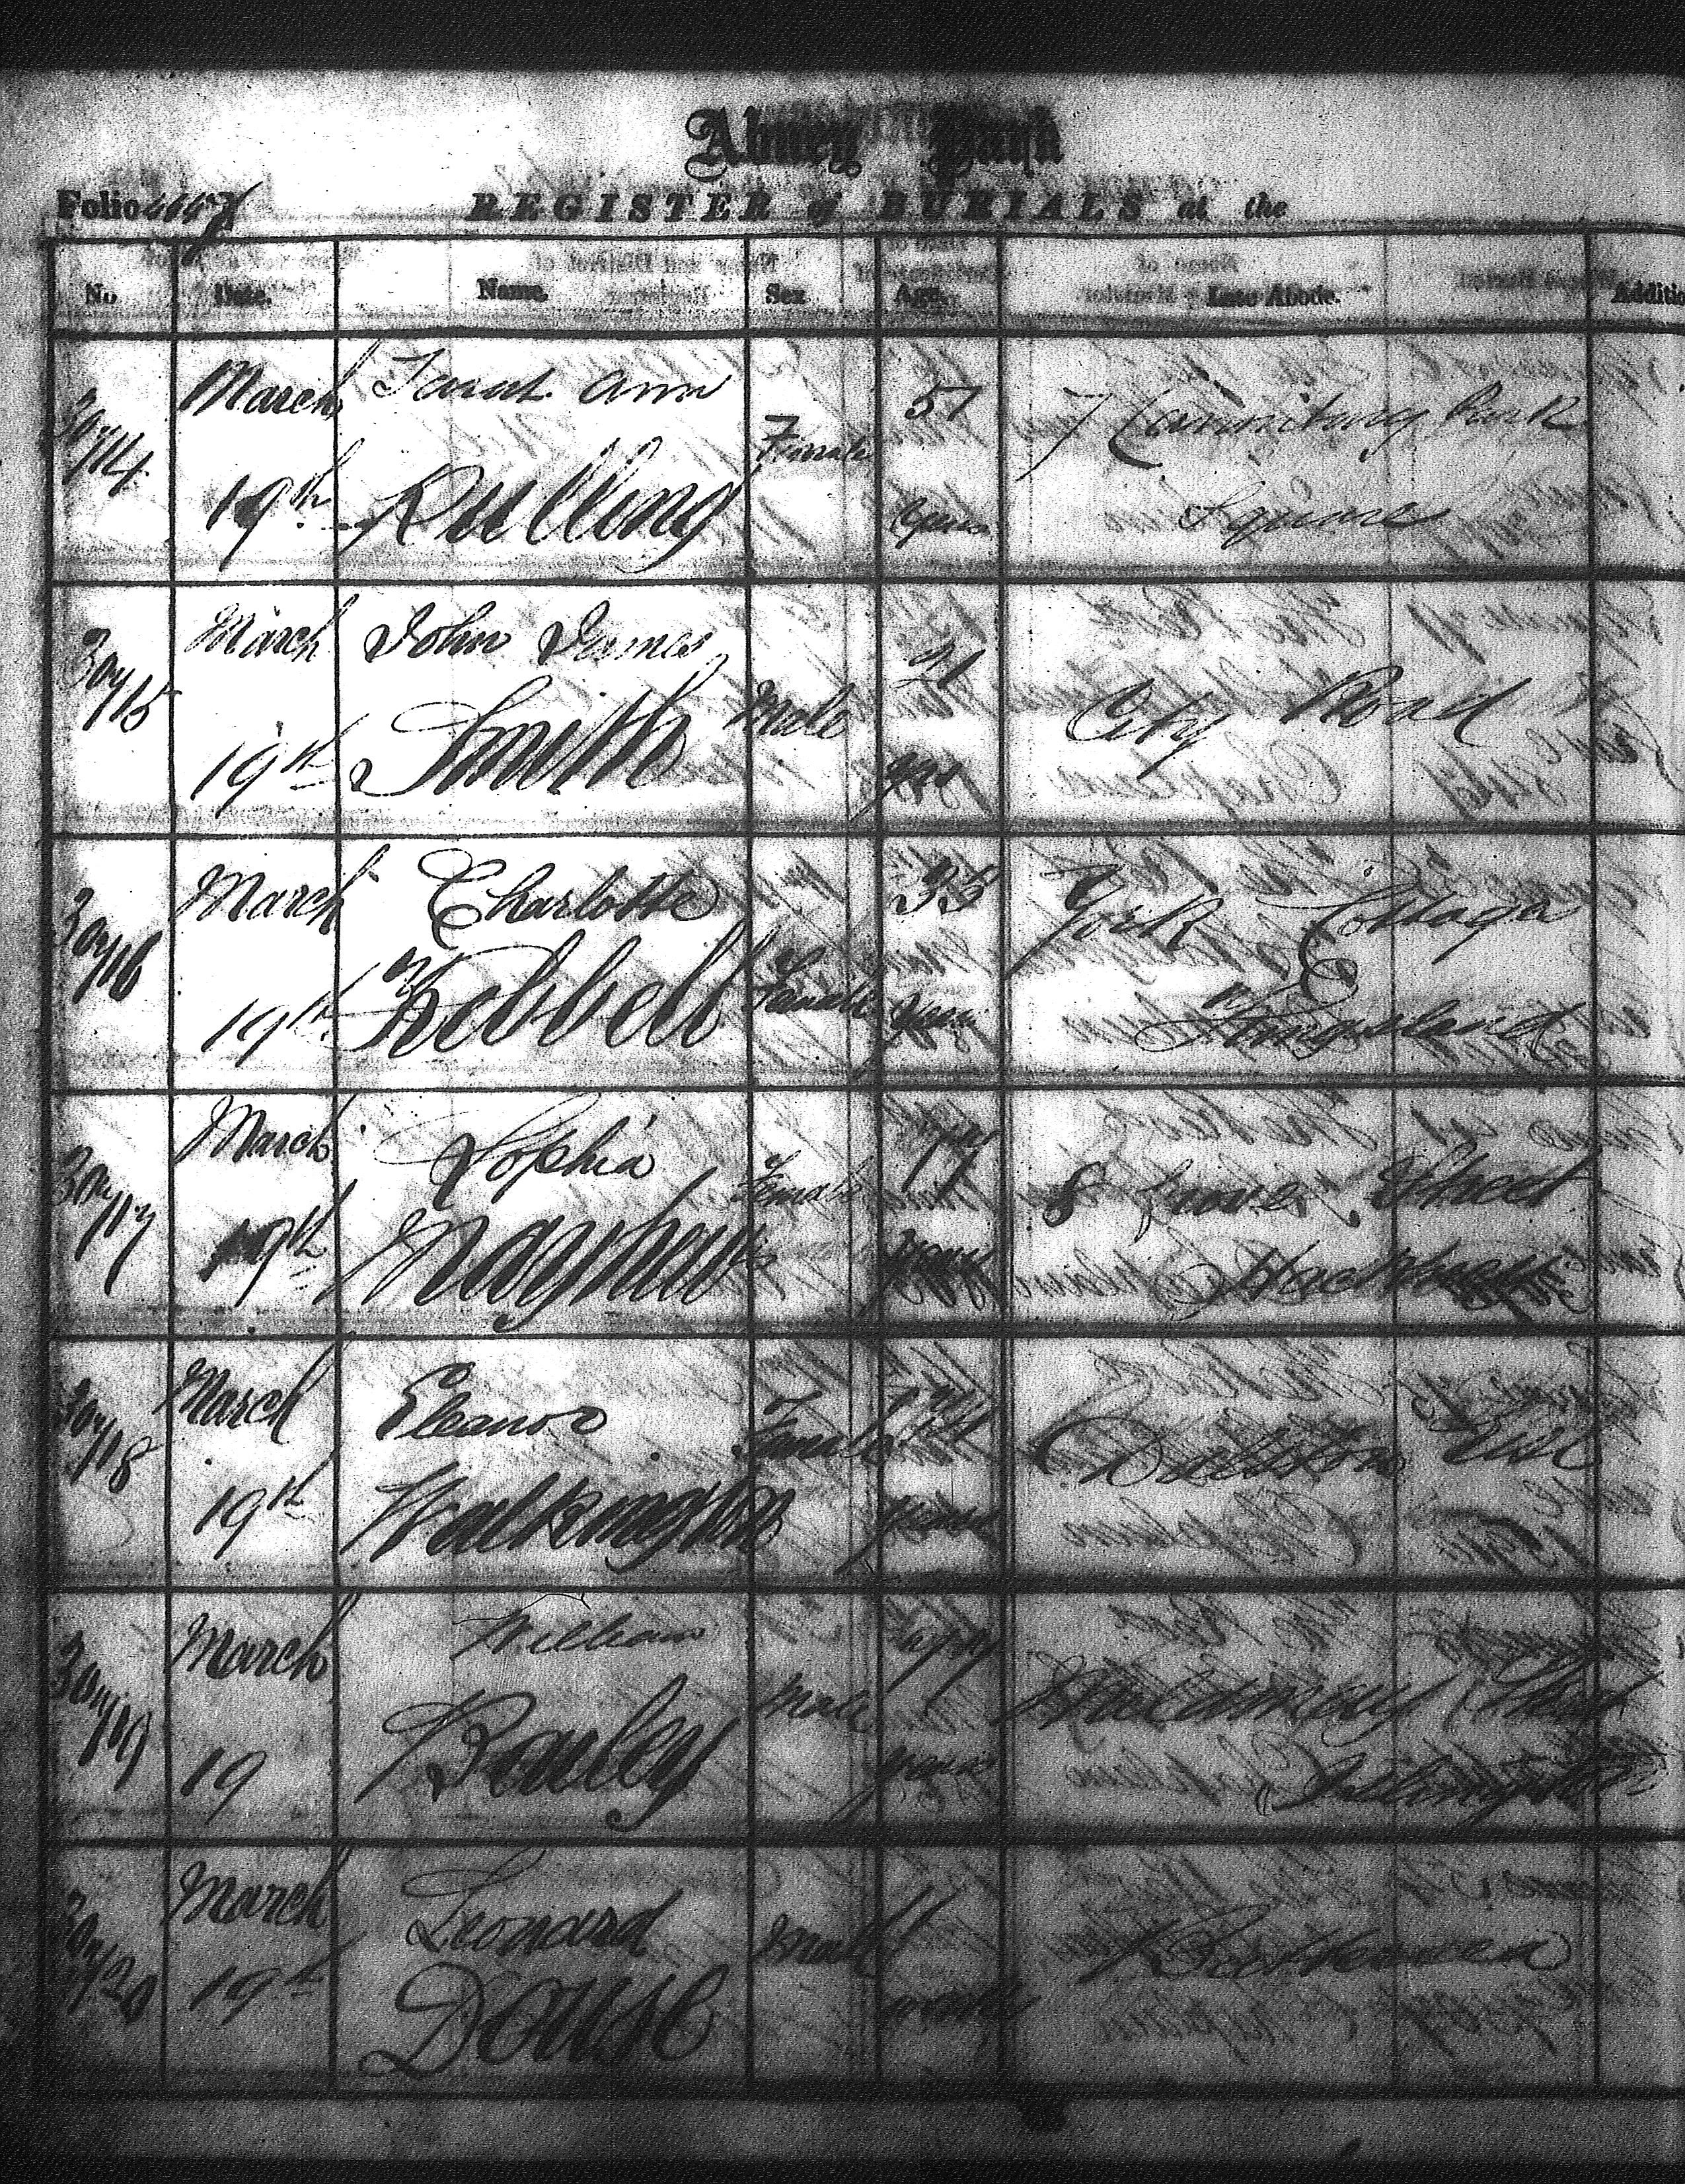 Abney Park
Folio
REGISTER of BURIALS at the
No Date. Name. Sex Age. Late Abode. Additio
30714 March 19th Sarah Ann Rulling Female 57 years 7 Cannonbury Park Square
30715 March 19th John James Smith Male 21 yrs City Road
30716 March 19th Charlotte Kebbell Female 35 years York Cottage Kingsland
30717 March 19th Sophia Mayhew Female years 8 Street Hackney
30718 March 19th Eleanor Walkington Female years Dalston Rise
30719 March 19 William Bailey Male years Mildmay Street Islington
30720 March 19th Leonard Douse Male 11 Battersea